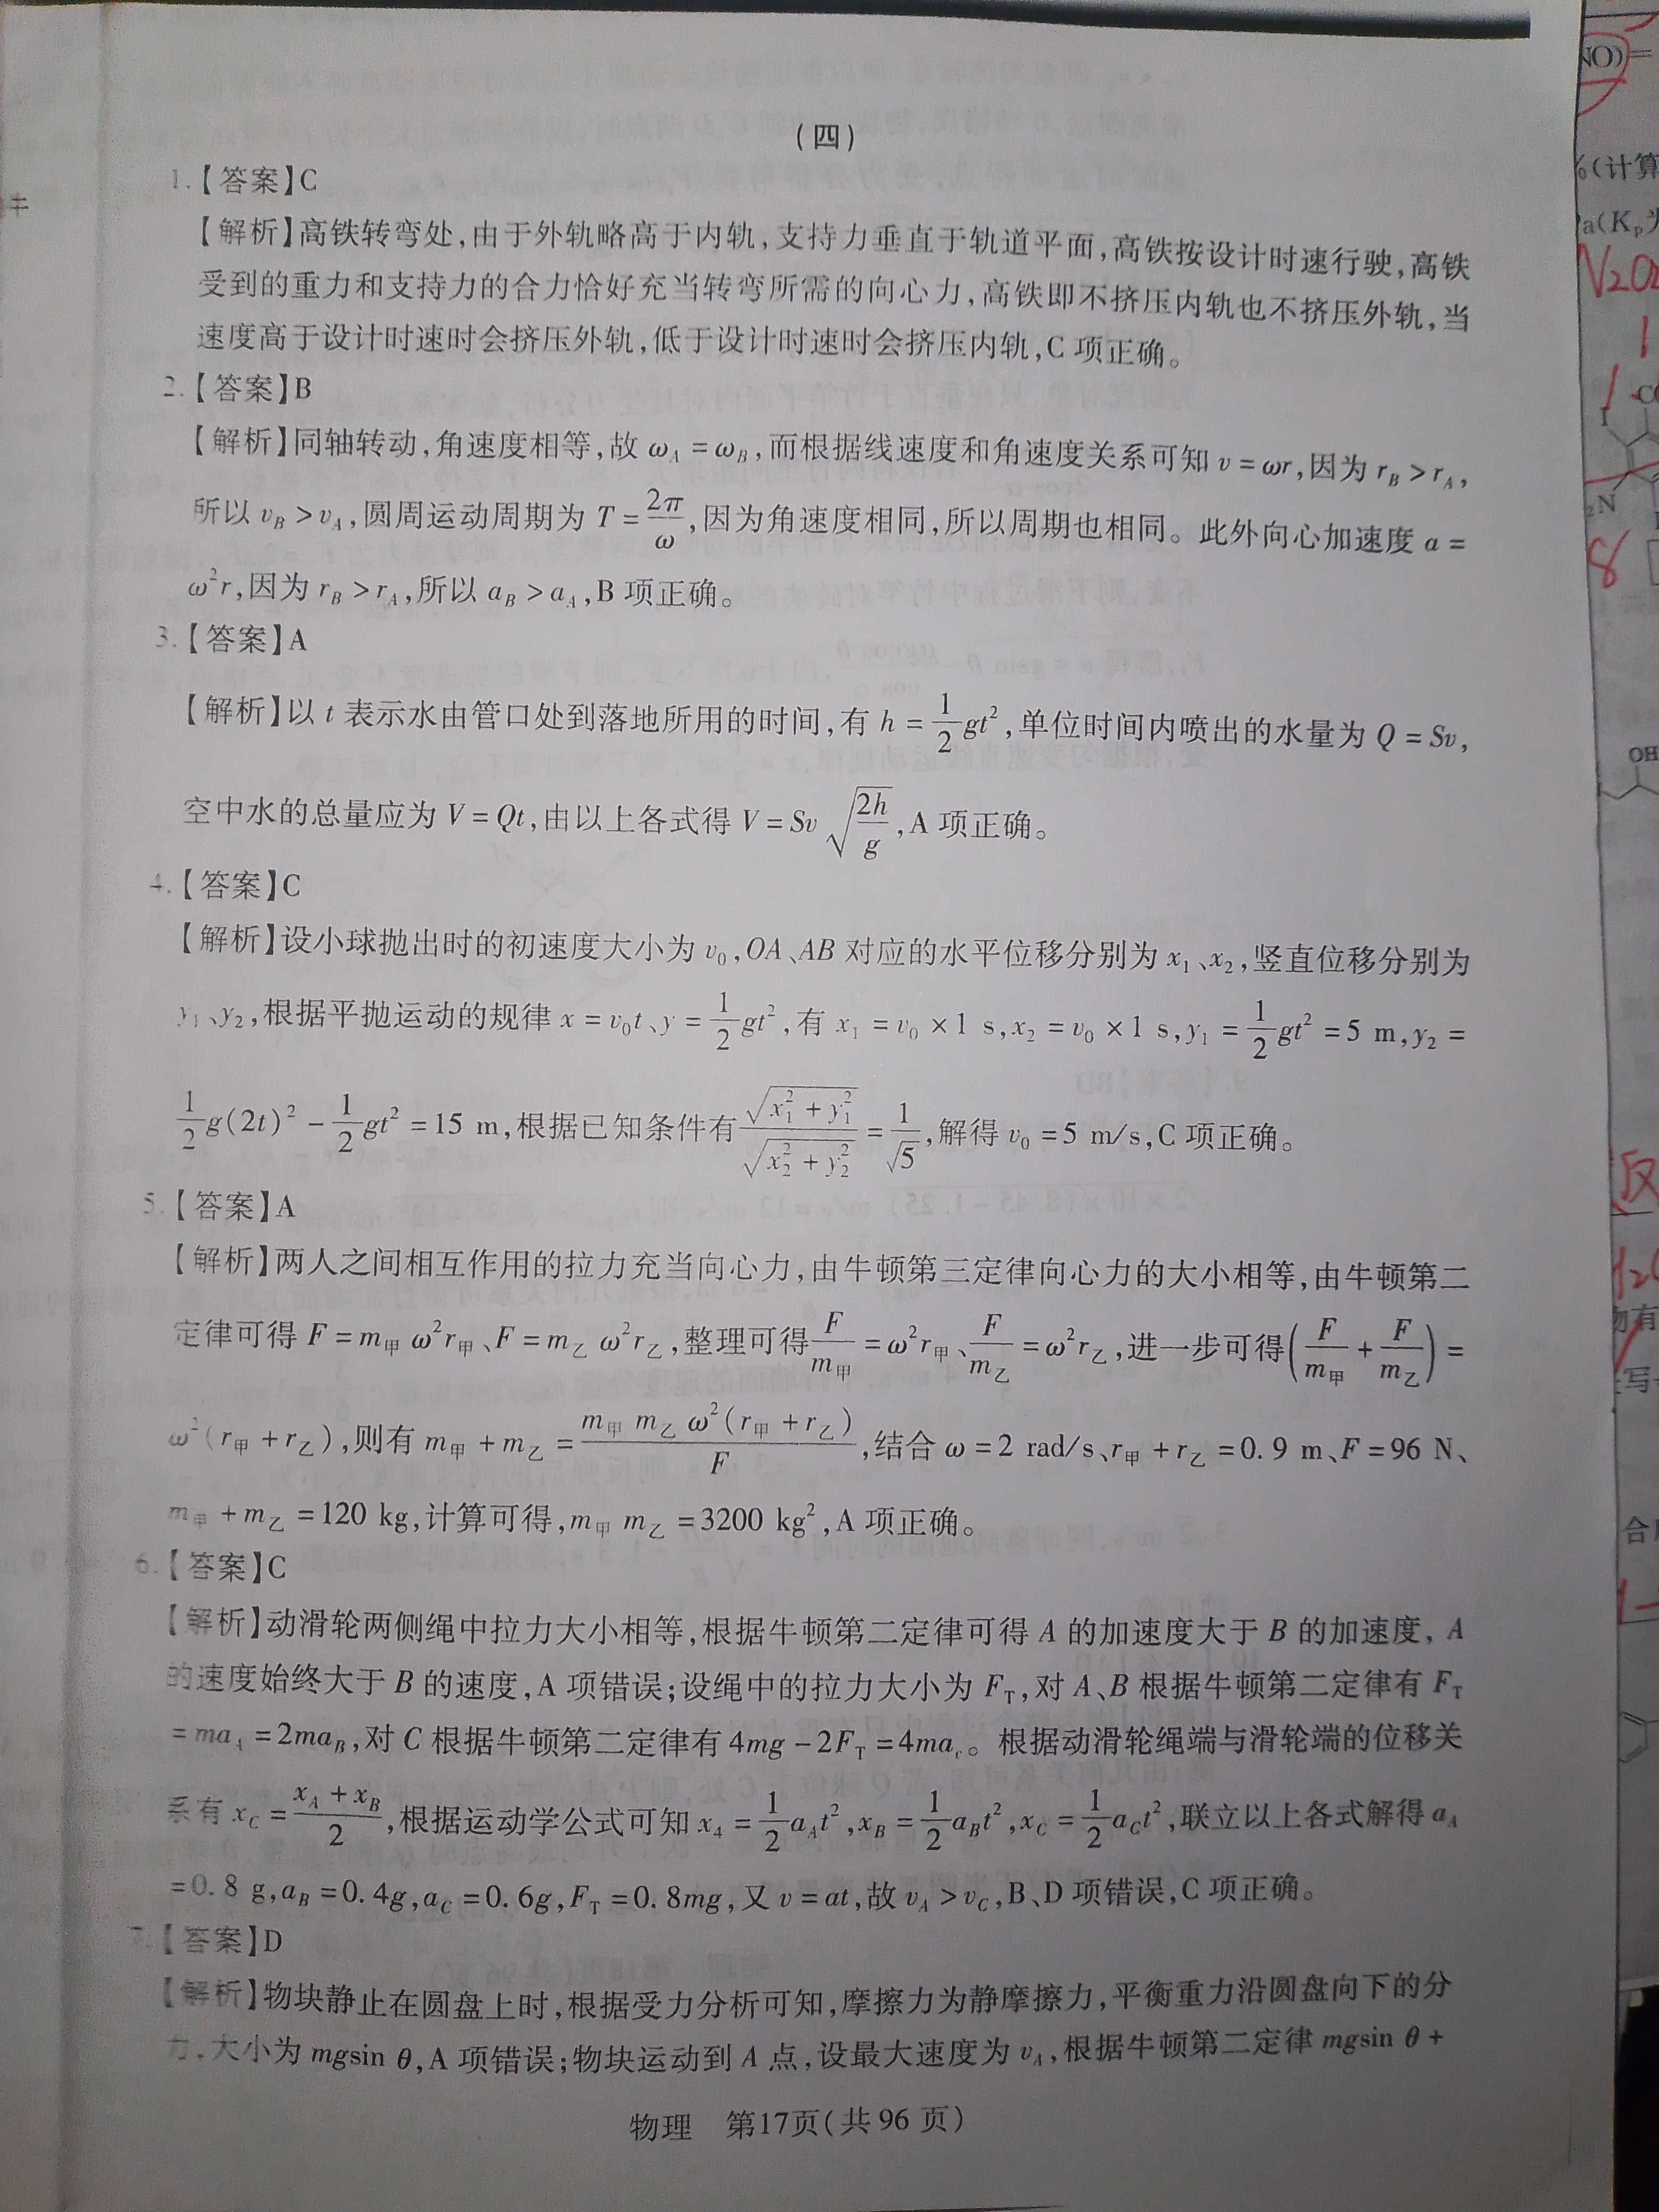 （四）
1.【答案】C
【解析】高铁转弯处,由于外轨略高于内轨,支持力垂直于轨道平面,高铁按设计时速行驶,高铁
受到的重力和支持力的合力恰好充当转弯所需的向心力,高铁即不挤压内轨也不挤压外轨,当
速度高于设计时速时会挤压外轨,低于设计时速时会挤压内轨,C 项正确。
2.【答案】B
【解析】同轴转动,角速度相等,故 ω_A = ω_B,而根据线速度和角速度关系可知 v = ωr,因为 r_B > r_A,
所以 v_B > v_A,圆周运动周期为 T = 2π/ω,因为角速度相同,所以周期也相同。此外向心加速度 a =
ω²r,因为 r_B > r_A,所以 a_B > a_A,B 项正确。
3.【答案】A
【解析】以 t 表示水由管口处到落地所用的时间,有 h = 1/2 gt²,单位时间内喷出的水量为 Q = Sv,
空中水的总量应为 V = Qt,由以上各式得 V = Sv √(2h/g),A 项正确。
4.【答案】C
【解析】设小球抛出时的初速度大小为 v₀,OA、AB 对应的水平位移分别为 x₁、x₂,竖直位移分别为
y₁、y₂,根据平抛运动的规律 x = v₀t、y = 1/2 gt²,有 x₁ = v₀ × 1 s,x₂ = v₀ × 1 s,y₁ = 1/2 gt² = 5 m,y₂ =
1/2 g(2t)² − 1/2 gt² = 15 m,根据已知条件有 √(x₁² + y₁²)/√(x₂² + y₂²) = 1/√5,解得 v₀ = 5 m/s,C 项正确。
5.【答案】A
【解析】两人之间相互作用的拉力充当向心力,由牛顿第三定律向心力的大小相等,由牛顿第二
定律可得 F = m甲 ω²r甲、F = m乙 ω²r乙,整理可得 F/m甲 = ω²r甲、F/m乙 = ω²r乙,进一步可得(F/m甲 + F/m乙) =
ω²(r甲 + r乙),则有 m甲 + m乙 = m甲 m乙 ω²(r甲 + r乙)/F,结合 ω = 2 rad/s、r甲 + r乙 = 0.9 m、F = 96 N、
m甲 + m乙 = 120 kg,计算可得,m甲 m乙 = 3200 kg²,A 项正确。
6.【答案】C
【解析】动滑轮两侧绳中拉力大小相等,根据牛顿第二定律可得 A 的加速度大于 B 的加速度, A
的速度始终大于 B 的速度,A 项错误;设绳中的拉力大小为 F_T,对 A、B 根据牛顿第二定律有 F_T
= ma_A = 2ma_B,对 C 根据牛顿第二定律有 4mg − 2F_T = 4ma_C。根据动滑轮绳端与滑轮端的位移关
系有 x_C = (x_A + x_B)/2,根据运动学公式可知 x_A = 1/2 a_A t²,x_B = 1/2 a_B t²,x_C = 1/2 a_C t²,联立以上各式解得 a_A
= 0.8 g,a_B = 0.4g,a_C = 0.6g,F_T = 0.8mg,又 v = at,故 v_A > v_C,B、D 项错误,C 项正确。
7.【答案】D
【解析】物块静止在圆盘上时,根据受力分析可知,摩擦力为静摩擦力,平衡重力沿圆盘向下的分
力,大小为 mgsin θ,A 项错误;物块运动到 A 点,设最大速度为 v_A,根据牛顿第二定律 mgsin θ +
物理 第17页(共 96 页)
NO) =
(计算
a(Kp为
N₂O
1
8
OH
反
物有
写
合